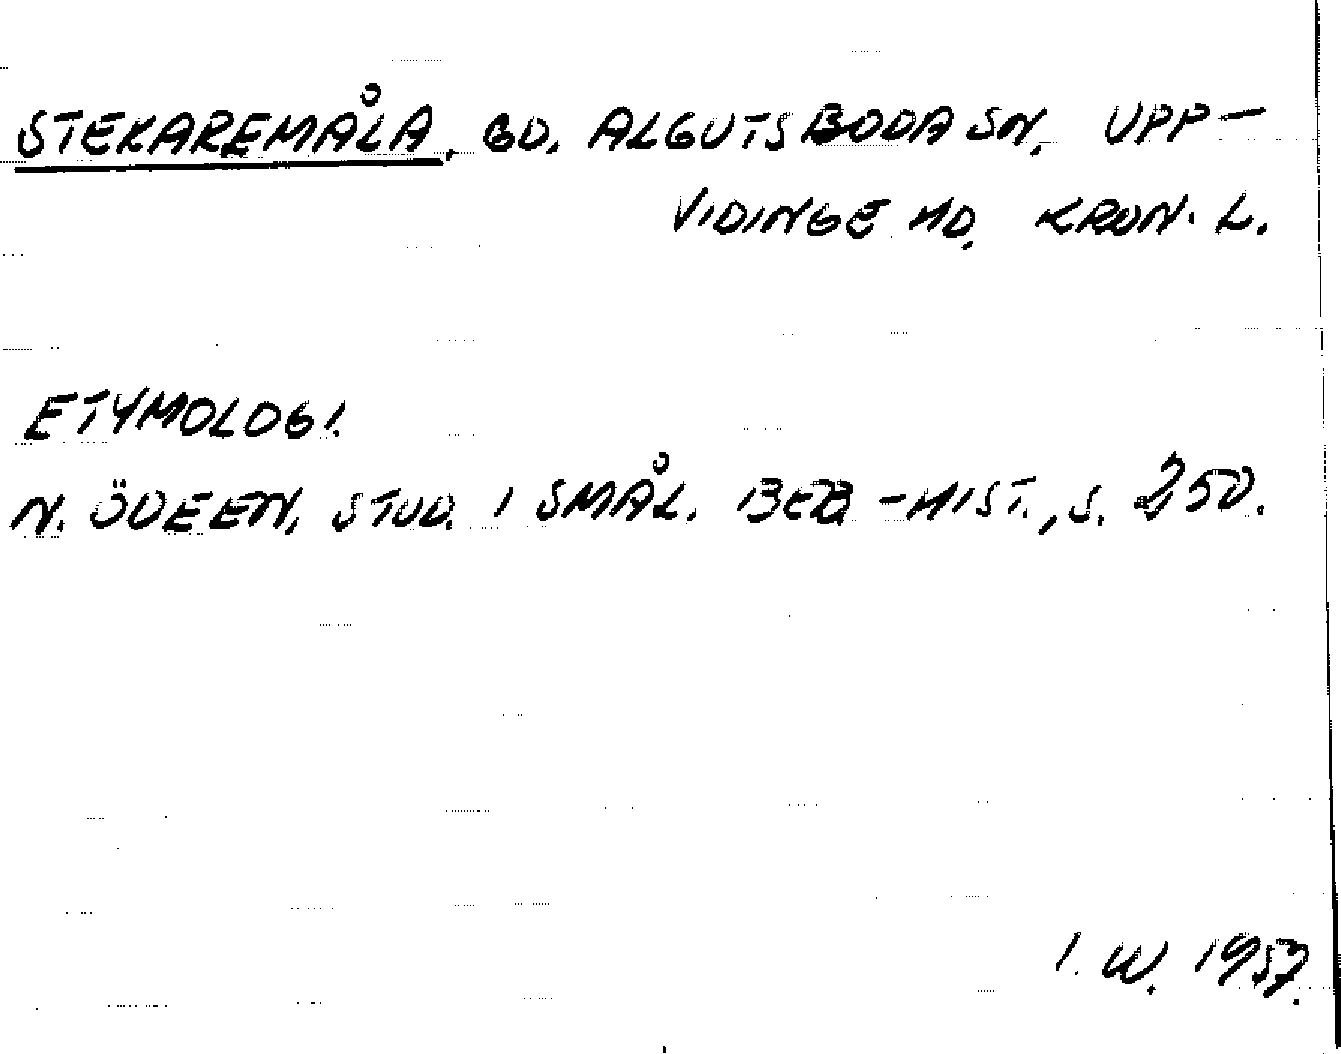 STEKAREMÅLA, GD, ALGUTSBODA SN, UPP-
VIDINGE HD, KRON. L.
ETYMOLOGI.
N. ÖDEEN, STUD. I SMÅL. BEB-HIST., S. 250.
I. W. 1957.